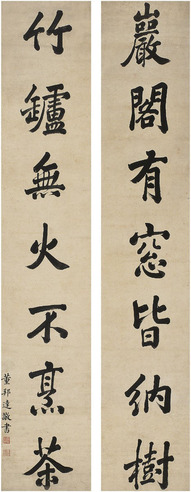 巖閣有窓皆納樹
竹罏無火不烹茶
董邦達敬書